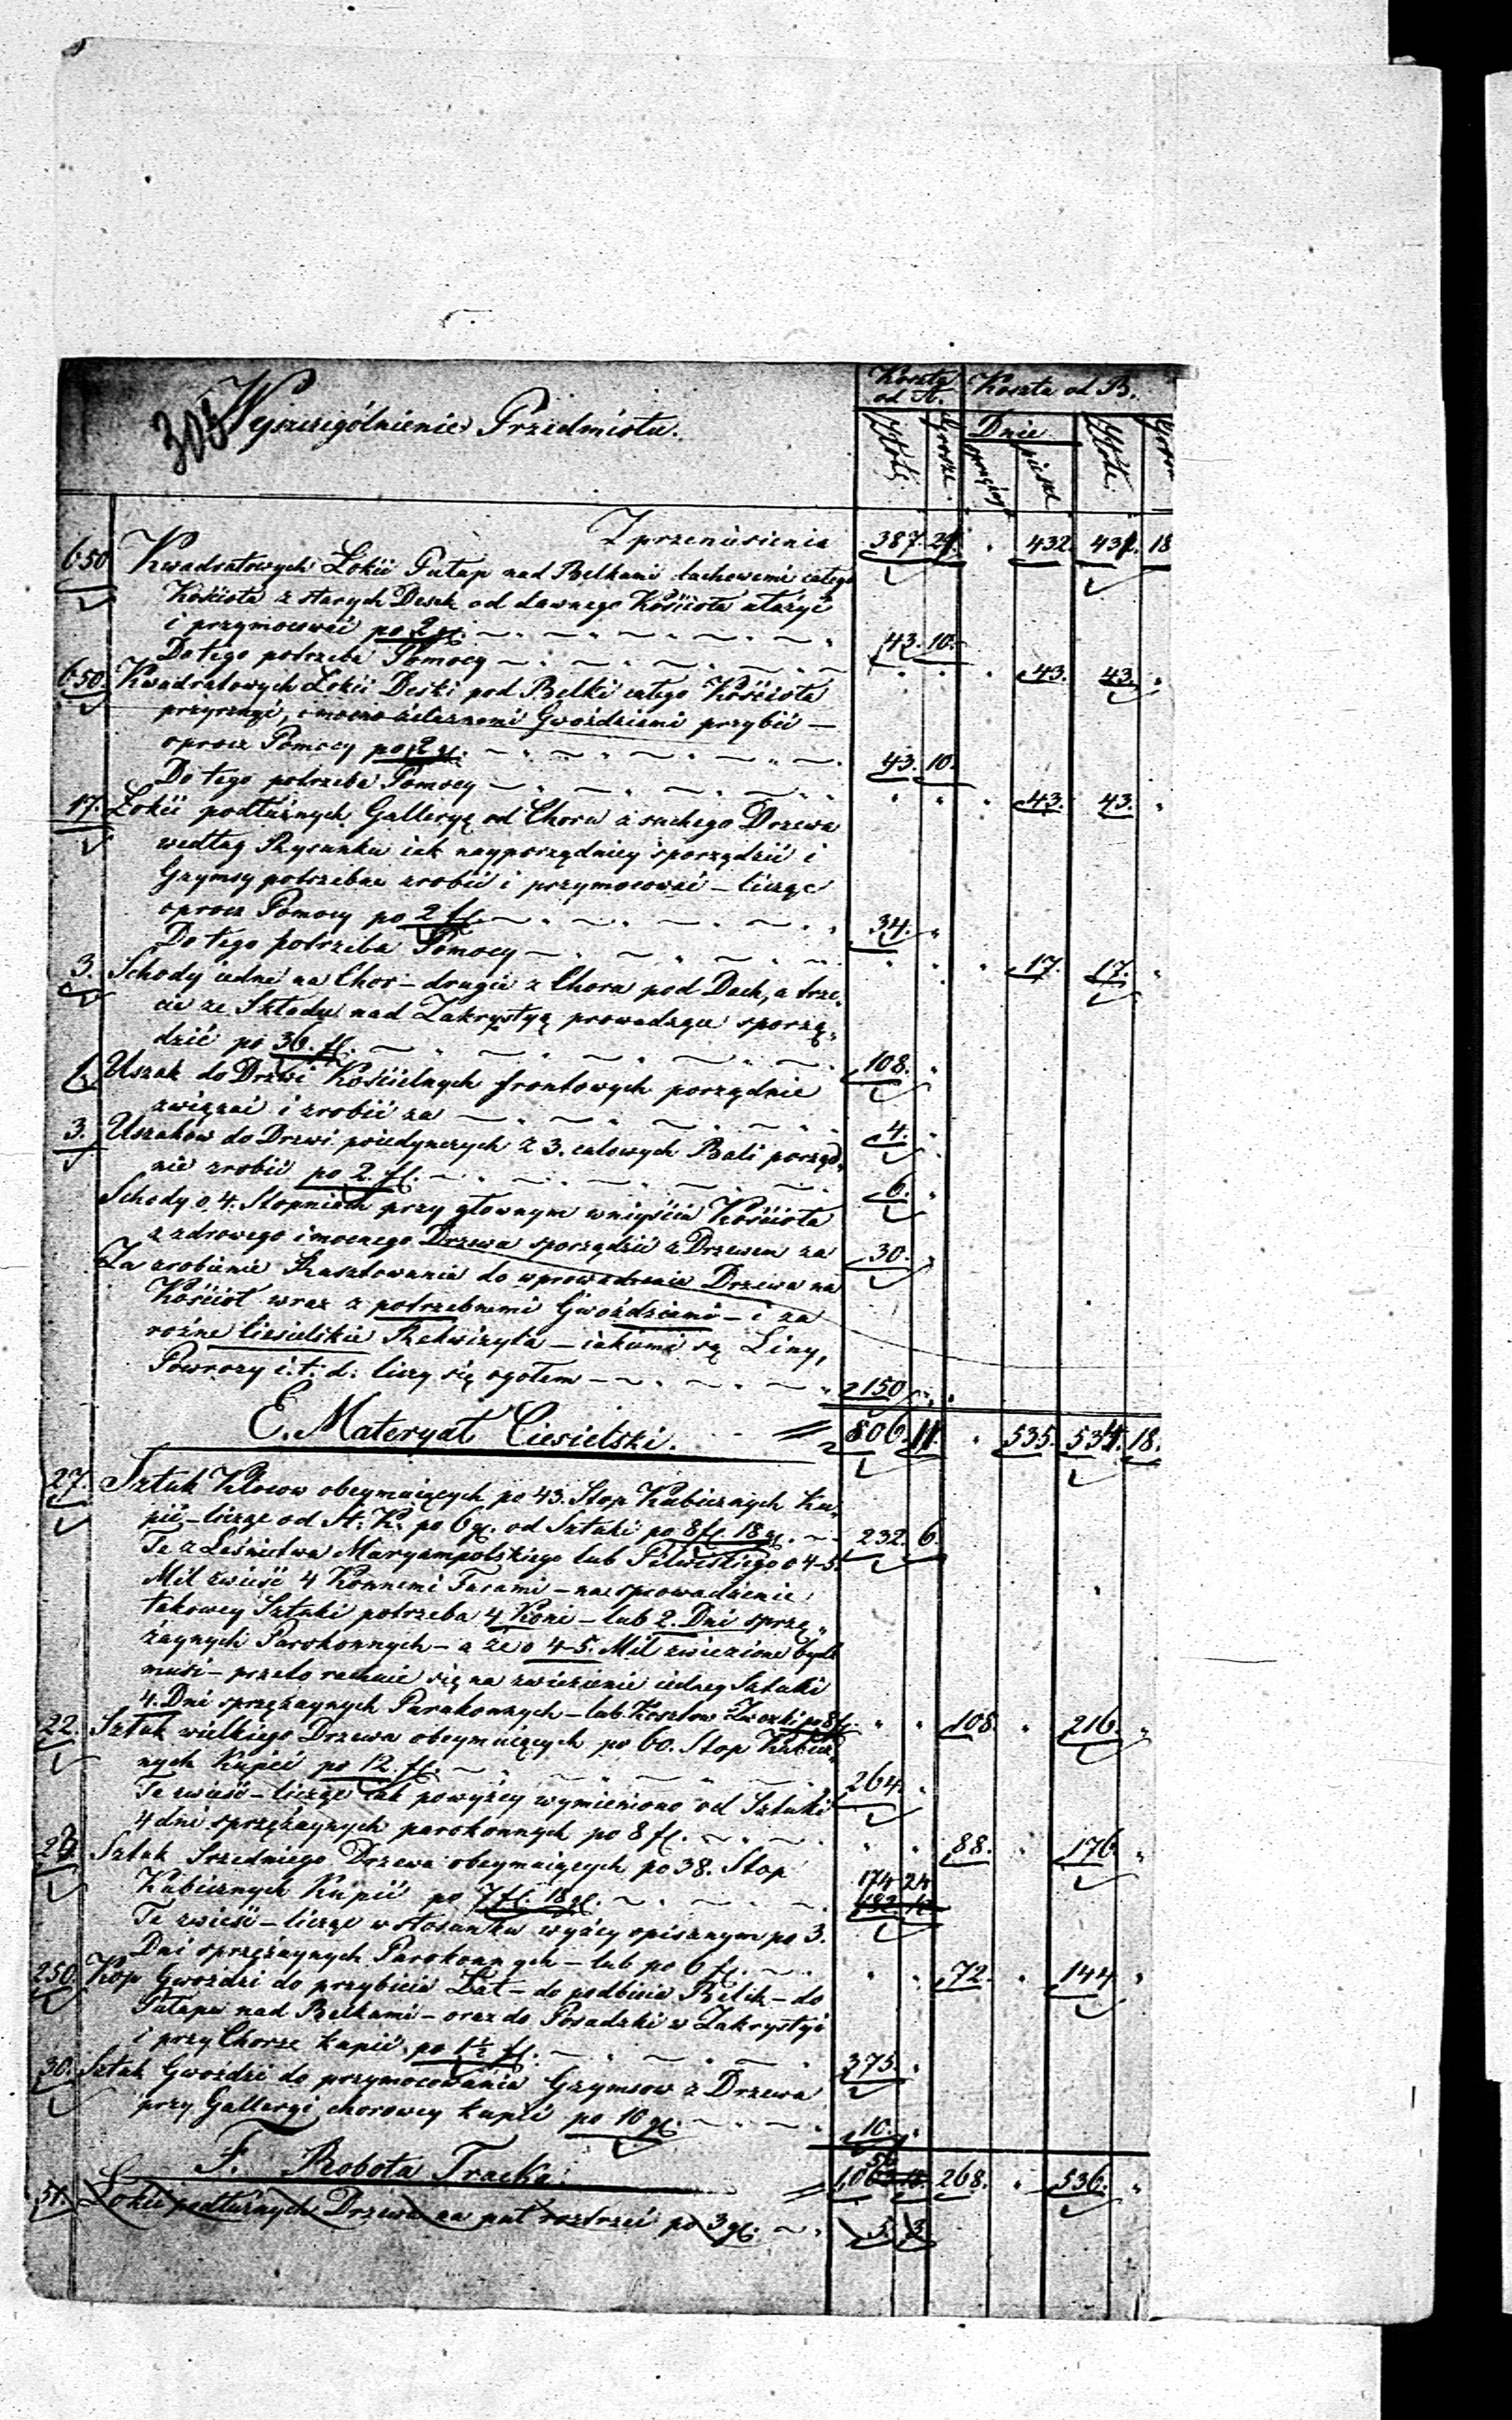 308
Wyszczególnienie Przedmiotu.
Koszta od A. Koszta od B.
Złote Grosze Dnie sprzężaj piesze Złote Grosze
Z przeniesienia 387. 21. " 432. 431. 18
650 Kwadratowych Łokci Pułap nad Belkami dachowemi całego
Kościoła z starych Desek od dawnego Kościoła ułożyć
i przymocować po 2 gl. 43. 10.
Do tego potrzeba Pomocy 43. 43. "
650. Kwadratowych Łokci Deski pod Belki całego Kościoła
przyrznąć, i mocno żelaznemi Gwoździami przybić —
oprocz Pomocy po 2 gl. 43. 10.
Do tego potrzeba Pomocy — " " " 43. 43. "
17. Łokci podłużnych Galleryę od Choru z suchego Drzewa
według Rysunku iak nayporządniey sporządzić i
Gzymsy potrzebne zrobić i przymocować — licząc
oprocz Pomocy po 2 fl. 34. "
Do tego potrzeba Pomocy — " " " 17. 17. "
3. Schody iedne na Chor — drugie z Choru pod Dach, a trze„
cie ze Składu nad Zakrystyą prowadzące sporzą„
dzić po 36. fl. 108. "
1. Uszak do Drzwi Kościelnych frontowych porządnie
związać i zrobić za 4. "
3. Uszakow do Drzwi poiedynczych z 3. calowych Bali porząd„
nie zrobić po 2. fl. 6. "
Schody o 4. Stopniach przy głownym wniyściu Kościoła
z zdrowego i mocnego Drzewa sporządzić z Drzewem za 30. "
Za zrobienie Rusztowania do wprowadzenia Drzewa na
Kościoł wraz z potrzebnemi Gwoździami — i za
rożne Ciesielskie Rekwizyta — iakiemi są Liny,
Powrozy i. t. d. liczy się ogołem — 150 "
E. Materyał Ciesielski. 806. 11. " 535. 534. 18.
27. Sztuk Klocow obeymuiących po 43. Stop Kubicznych Ku„
pić — licząc od St. K. po 6 gl. od Sztuki po 8 fl. 18 gl. 232. 6.
Te z Leśnictwa Maryampolskiego lub Pilwiskiego o 4-5.
Mil zwieść 4 Konnemi Furami — na sprowadzenie
takowey Sztuki potrzeba 4 Koni — lub 2. Dni sprzę„
żaynych Parokonnych — a że o 4-5. Mil zwiezione bydź
musi — przeto rachuie się na zwiezienie iedney Sztuki
4. Dni sprzężaynych Parokonnych — lub Kosztow Zwozki po 8 fl. " " 108. " 216. "
22. Sztuk wielkiego Drzewa obeymuiących po 60. Stop Kubicz„
nych Kupić po 12. fl. 264. "
Te zwieść — licząc iak powyżey wymieniono od Sztuki
4 dni sprzężaynych parokonnych po 8 fl. " " 88. " 176. "
23. Sztuk Srzedniego Drzewa obeymuiących po 38. Stop
Kubicznych Kupić po 7 fl. 18 gl. 174 24
Te zwieść — licząc w stosunku wyżey opisanym po 3.
Dni sprzężaynych Parokonnych — lub po 6 fl. " " 72. " 144. "
250. Kop Gwoździ do przybicia Łat — do podbicia Belek — do
Pułapu nad Belkami — oraz do Posadzki w Zakrystyi
i przy Chorze kupić po 1½ fl. 375. "
30. Sztuk Gwoździ do przymocowania Gzymsow z Drzewa
przy Galleryi chorowey kupić po 10 gl. 10. "
F. Robota Tracka. 268. " 536. "
51. Łokci podłużnych Drzewa na puł roztrzeć po 3 gl. 5. 3.